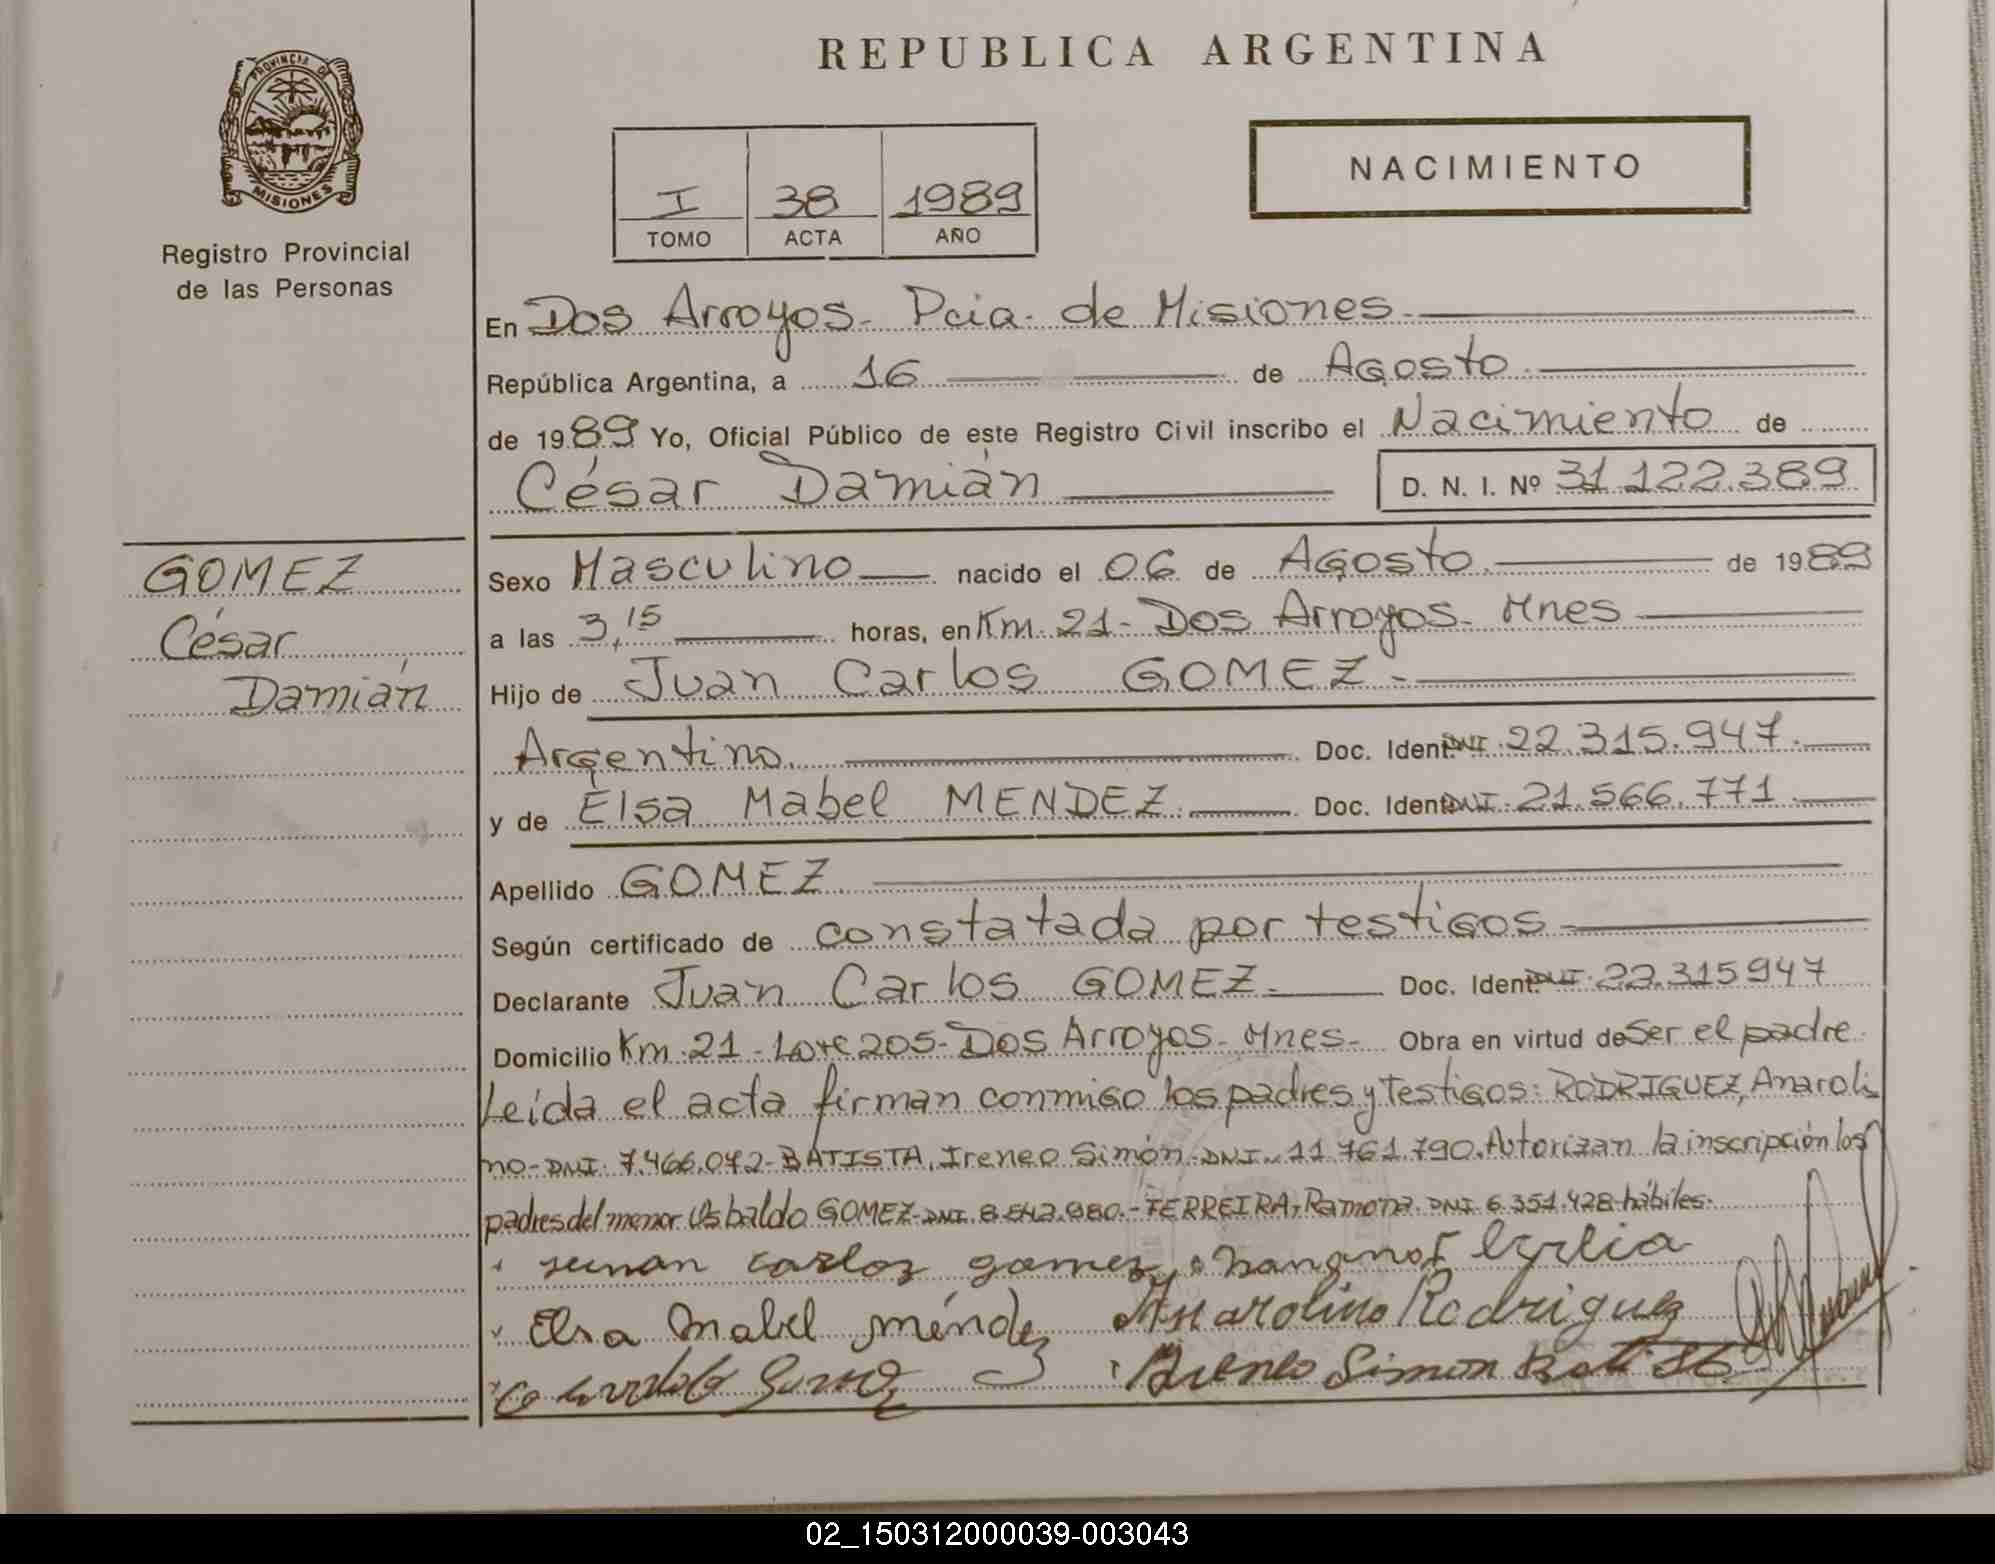 REPUBLICA ARGENTINA
PROVINCIA DE
MISIONES
Registro Provincial
de las Personas
I 38 1989
TOMO ACTA AÑO
NACIMIENTO
En Dos Arroyos - Pcia. de Misiones.
República Argentina, a 16 de Agosto
de 1989 Yo, Oficial Público de este Registro Civil inscribo el Nacimiento de
César Damián D. N. I. Nº 31.122.389
GOMEZ
César
Damián
Sexo Masculino nacido el 06 de Agosto de 1989
a las 3,15 horas, en Km. 21 - Dos Arroyos - Mnes
Hijo de Juan Carlos GOMEZ.-
Argentino. Doc. Ident. DNI. 22.315.947.
y de Elsa Mabel MENDEZ. Doc. Ident. DNI. 21.566.771.
Apellido GOMEZ
Según certificado de constatada por testigos
Declarante Juan Carlos GOMEZ. Doc. Ident. DNI. 22.315947
Domicilio Km. 21 - Lote 205 - Dos Arroyos - Mnes - Obra en virtud de Ser el padre.
Leída el acta firman conmigo los padres y testigos: RODRIGUEZ, Anaroli
no - DNI. 7.466.042 - BATISTA, Ireneo Simón - DNI. 11.761.790. Autorizan la inscripción los
padres del menor Osbaldo GOMEZ - DNI. 8.542.980. - FERREIRA, Ramona. DNI 6.351.428 - hábiles.
juan carlos gomez
Elsa Mabel méndez Anarolino Rodriguez
Ireneo Simon Batista
02_150312000039-003043